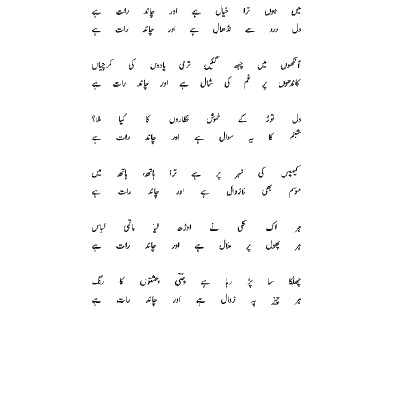 میں ہوں ترا خیال ہے اور چاند رات ہے
دل درد سے نڈھال ہے اور چاند رات ہے
آنکھوں میں چبھ گئیں تری یادوں کی کرچیاں
کاندھوں پر غم کی شال ہے اور چاند رات ہے
دل توڑ کے خموش نظاروں کا کیا ملا؟
شبنم کا یہ سوال ہے اور چاند رات ہے
کیمپس کی نہر پر ہے ترا ہاتھ، ہاتھ میں
موسم بھی لازوال ہے اور چاند رات ہے
ہر اک کلی نے اوڑھ لیا ماتمی لباس
ہر پھول پر ملال ہے اور چاند رات ہے
چھلکا سا پڑ رہا ہے وحشتوں کا رنگ
ہر چیز پہ زوال ہے اور چاند رات ہے